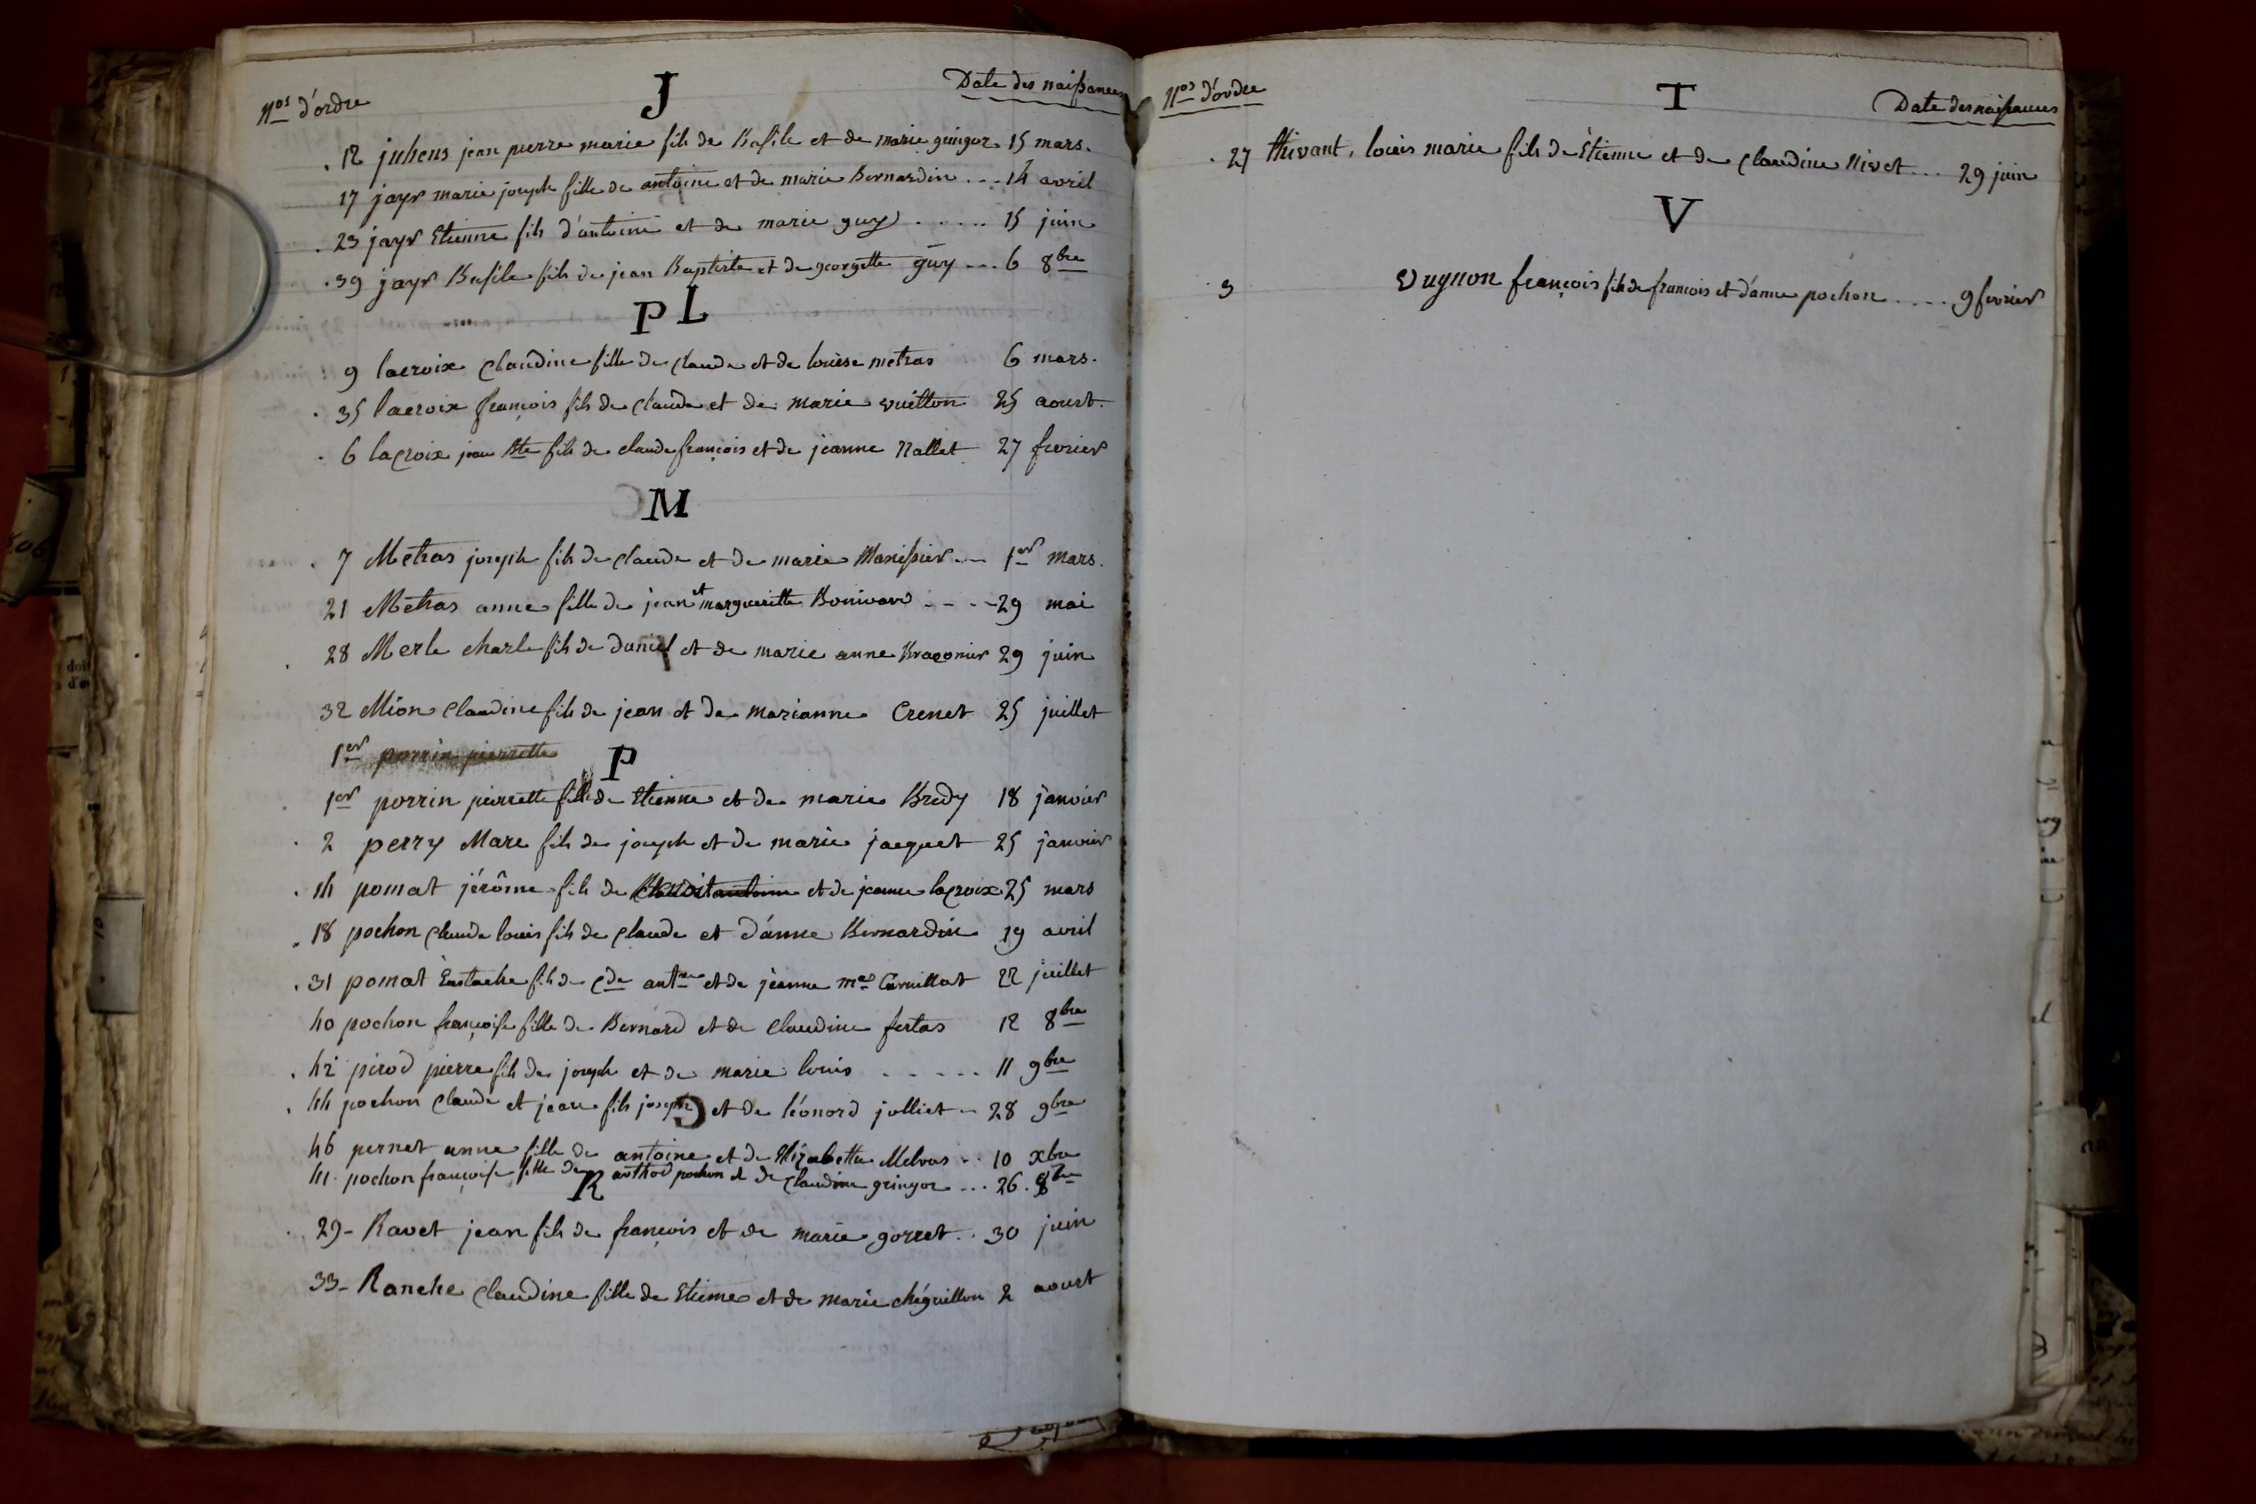 Nos d'ordre
J
Date des naissances
12 juhens jean pierre marie fils de Basile et de marie gringoz 15 mars.
17 jayr marie joseph fille de antoine et de marie Bernardin ... 14 avril
23 jayr Etienne fils d'antoine et de marie guy ...... 15 juin
39 jayr Basile fils de jean Baptiste et de georgette guy ... 6 8bre
P L
9 lacroix Claudine fille de Claude et de louise metras 6 mars.
35 lacroix françois fils de Claude et de marie vuitton 25 aoust.
6 lacroix jean Bte fils de claude françois et de jeanne Nallet 27 fevrier
M
7 Metras joseph fils de Claude et de marie Manissier ... 1er mars.
21 Metras anne fille de jean et margueritte Bonivard .... 29 mai
28 Merle charle fils de Daniel et de marie anne 29 juin
32 Mion Claudine fils de jean et de marianne Crenet 25 juillet
1er perrin pierrette
P
1er perrin pierrette fille de Etienne et de marie Bredy 18 janvier
2 perry Marc fils de joseph et de marie jacquet 25 janvier
14 pomat jérôme fils de et de jeanne lacroix 25 mars
18 pochon Claude louis fils de Claude et d'anne Bernardin 19 avril
31 pomat Eustache fils de Cde antne et de jeanne mie 22 juillet
40 pochon françoise fille de Bernard et de Claudine fertas 12 8bre
42 pirod pierre fils de joseph et de marie louis ..... 11 9bre
44 pochon Claude et jean fils joseph et de léonord jolliet .. 28 9bre
46 pernet anne fille de antoine et de Elizabette .. 10 xbre
41 pochon françoise fille de pochon et de Claudine gringoz ... 26. 8bre
R
29 - Ravet jean fils de françois et de marie gorret .. 30 juin
33 - Ranche Claudine fille de Etienne et de marie chéguillon 2 aoust
Nos d'ordre
T
Date des naissances
27 thivant, louis marie fils de Etienne et de Claudine Nivet ... 29 juin
V
3 vugnon françois fils de francois et d'anne pochon .... 9 fevrier